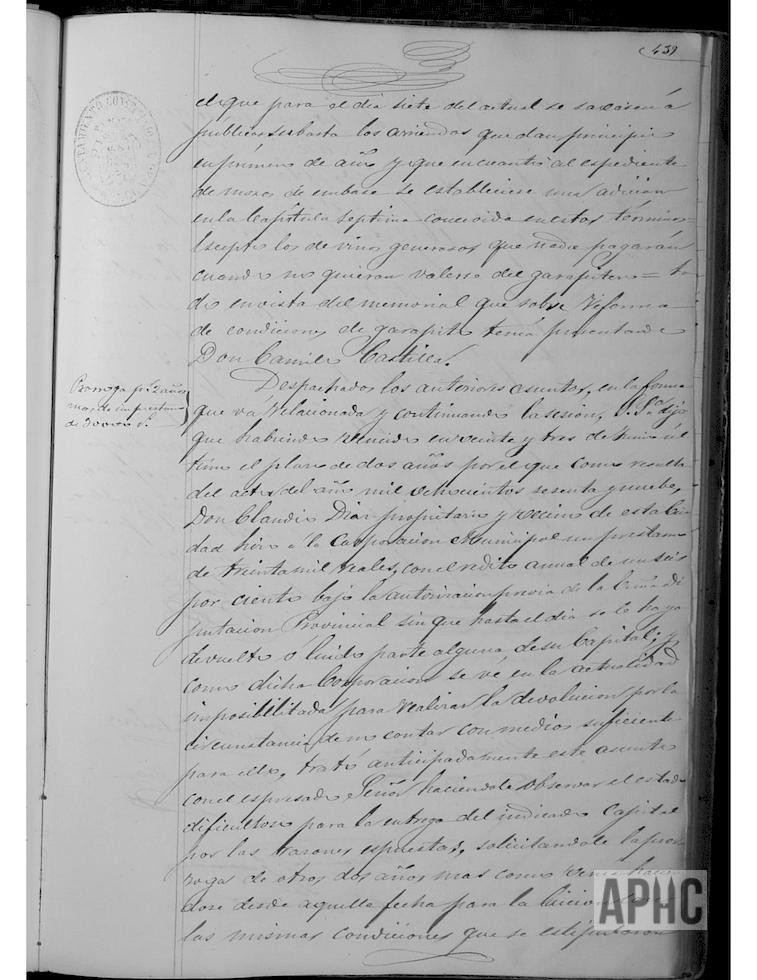 439
el que para el dia siete del actual se sacasen á
pública subasta los arriendos que dan principio
en primero de año y que en cuanto al espediente
de mosos de embase se estableciese una adicion
en la Capitula septima concevida en estos términos
Escepto los de vinos generosos que nada pagarán
cuando no quieran valerse del garapitero = to
do en vista del memorial que sobre reforma
de condiciones de garapito tenia presentado
Don Camilo Castilla.
Prorroga pr. 2 años
mas de un prestamo
de 30000 r.
Despachados los anteriores asuntos, en la forma
que va relacionada y continuando la sesion, S. Sa. dijo
que habiendo vencido en veinte y tres de Junio úl
timo el plazo de dos años por el que como resulta
del acta del año mil ochocientos sesenta y nueve,
Don Claudio Diaz propietario y vecino de esta Ciu
dad hizo á la Corporacion Municipal un prestamo
de treinta mil reales, con el redito anual de un seis
por ciento bajo la autorizacion previa de la Excma. Di
putacion Provincial sin que hasta el dia se le haya
devuelto o luido parte alguna de su Capital; y
como dicha Corporacion se vé en la actualidad
imposibilitada para realizar la devolucion por la
circunstancia de no contar con medios suficiente
para ello, trató anticipadamente este asunto
con el espresado Señor haciendole observar el estado
dificultoso para la entrega del indicado Capital
por las razones espuestas, solicitandole la pror
roga de otros dos años mas como venia hacien
dose desde aquella fecha para la
las mismas condiciones que se estipularon
APHC